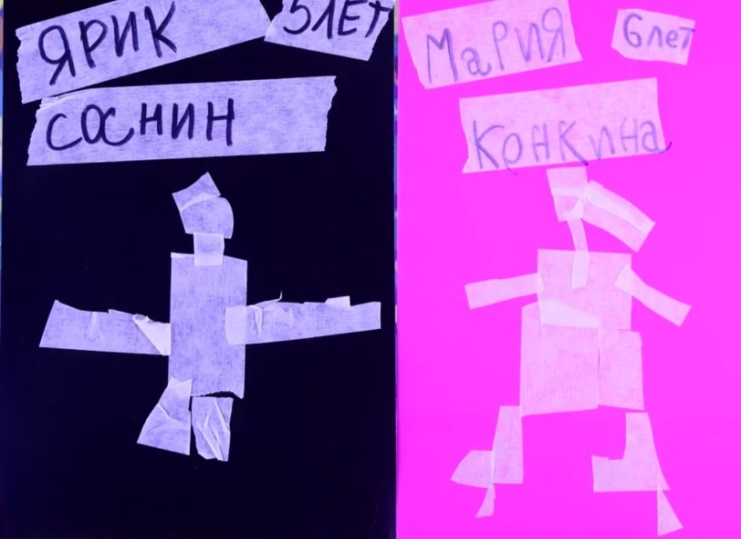 ЯРИК 5ЛЕТ
СОСНИН
МаРИЯ 6лет
КОНКИНа